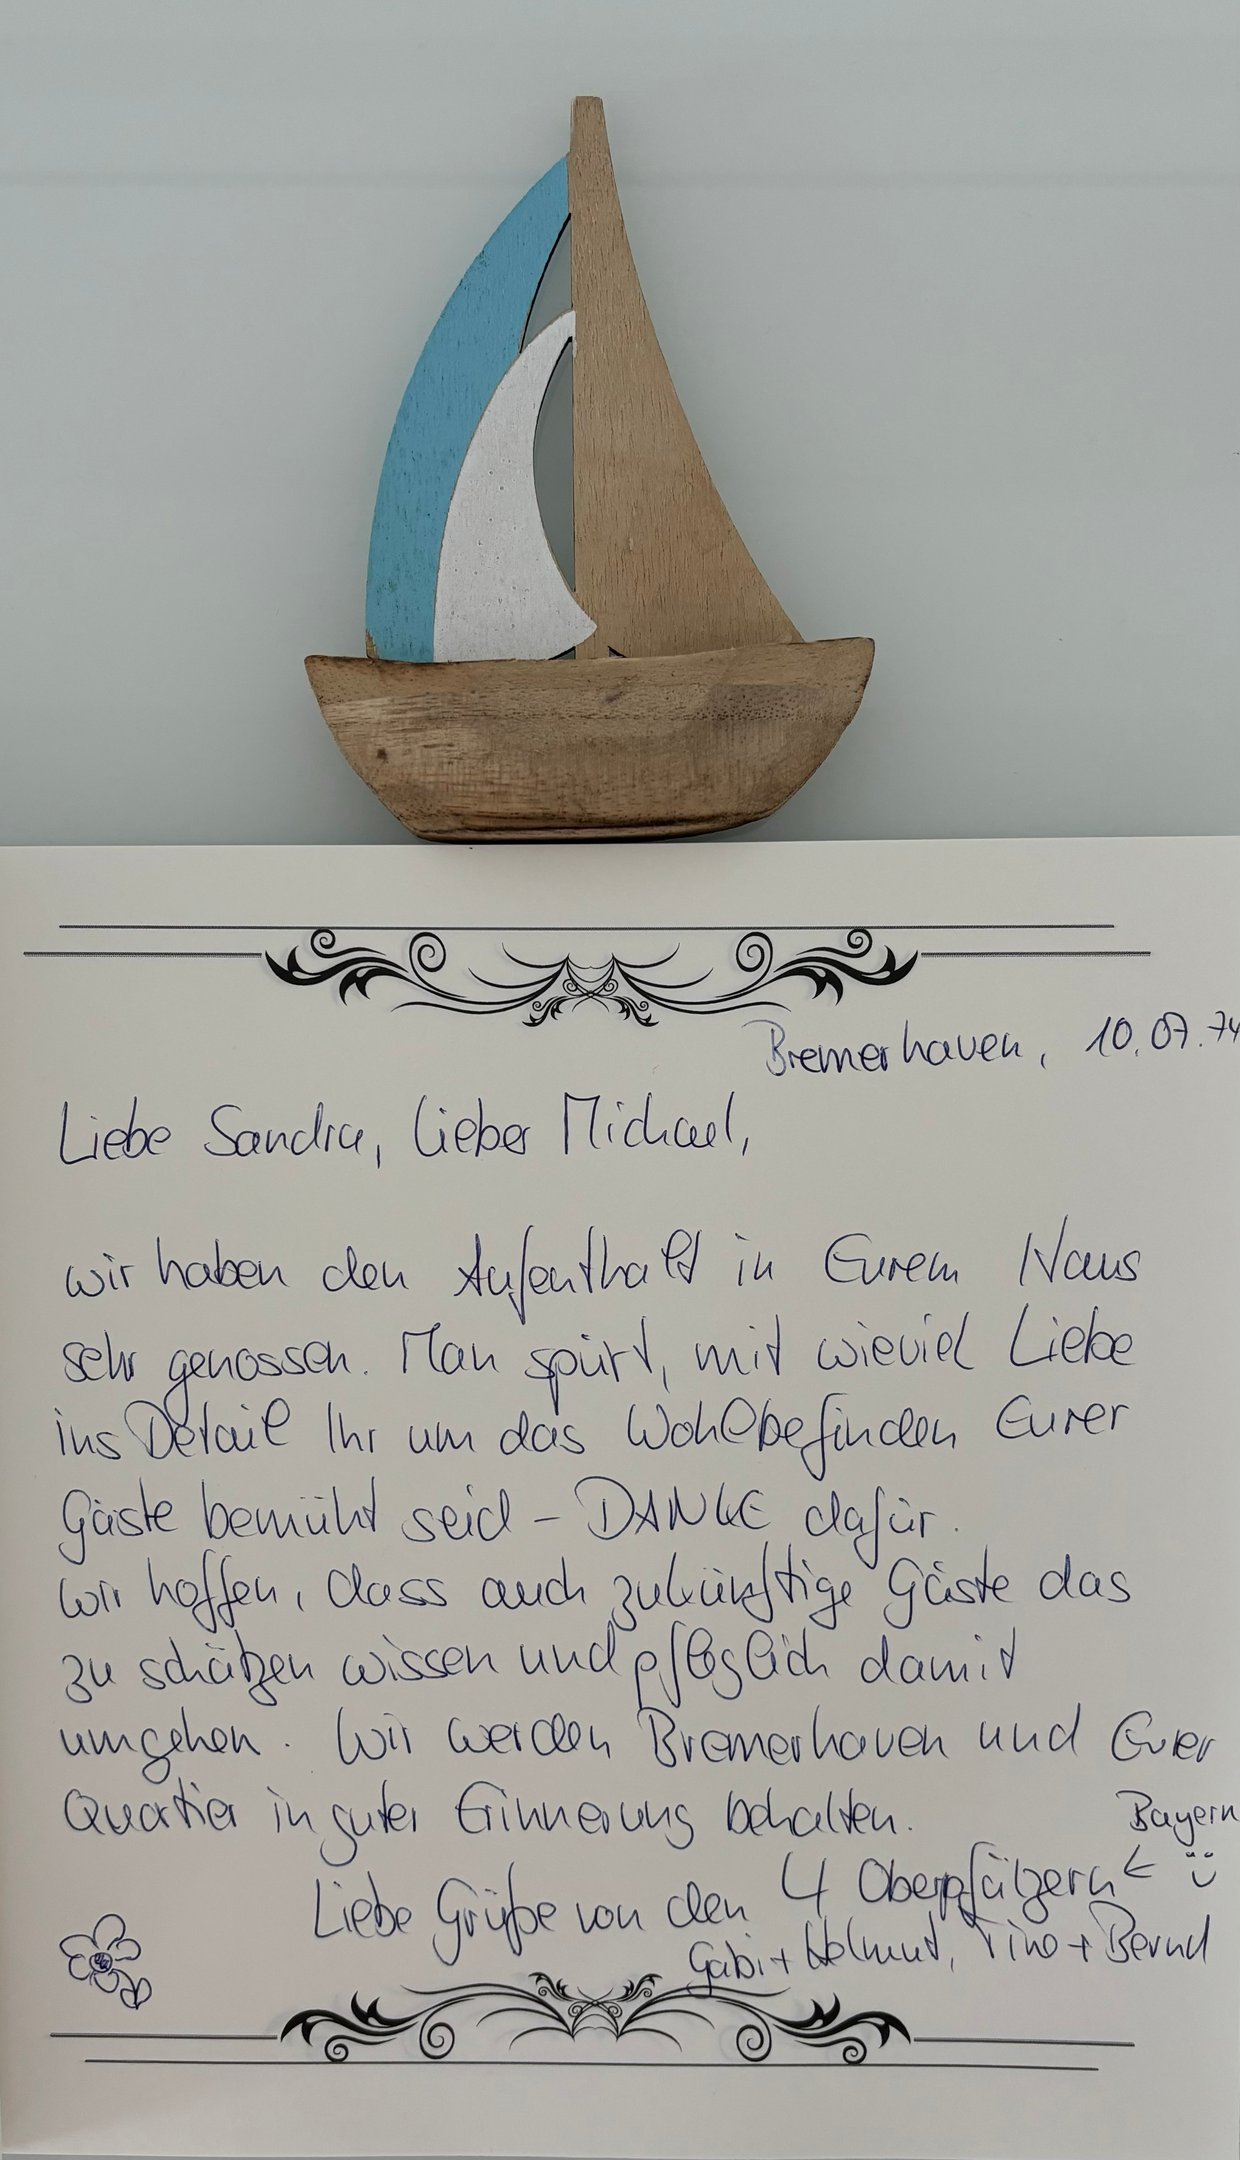 Bremerhaven, 10.07.24
Liebe Sandra, lieber Michael,
wir haben den Aufenthalt in Eurem Haus
sehr genossen. Man spürt, mit wieviel Liebe
ins Detail Ihr um das Wohlbefinden Eurer
Gäste bemüht seid - DANKE dafür.
Wir hoffen, dass auch zukünftige Gäste das
zu schätzen wissen und pfleglich damit
umgehen. Wir werden Bremerhaven und Euer
Quartier in guter Erinnerung behalten.
Bayern
Liebe Grüße von den 4 Oberpfälzern ←
Gabi + Helmut, Tino + Bernd